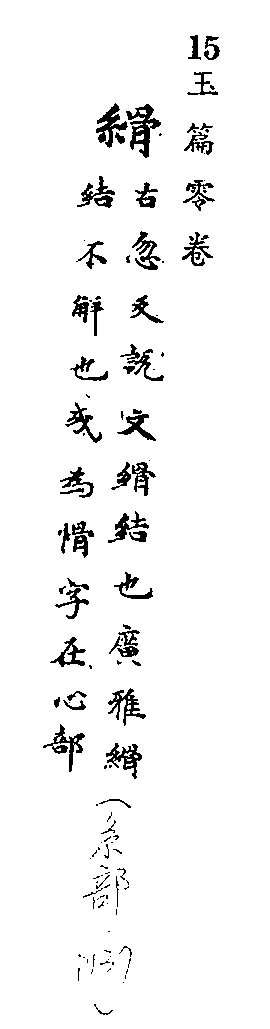 15
玉篇零卷
縎
古忽反說文縎結也廣雅縎
結不解也或為愲字在心部
(糸部